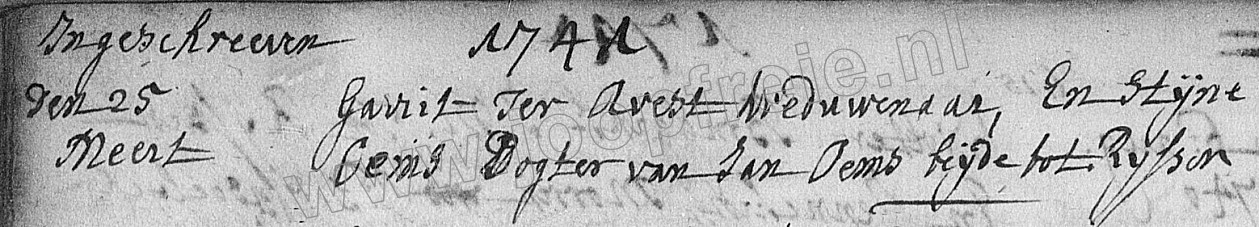 Ingeschreeven 1741
den 25 Garrit Ter Avest Weduwenaar, En Stÿne
Meert Oems Dogter van Jan Oems beÿde tot Ryssen
www.loopfroje.nl